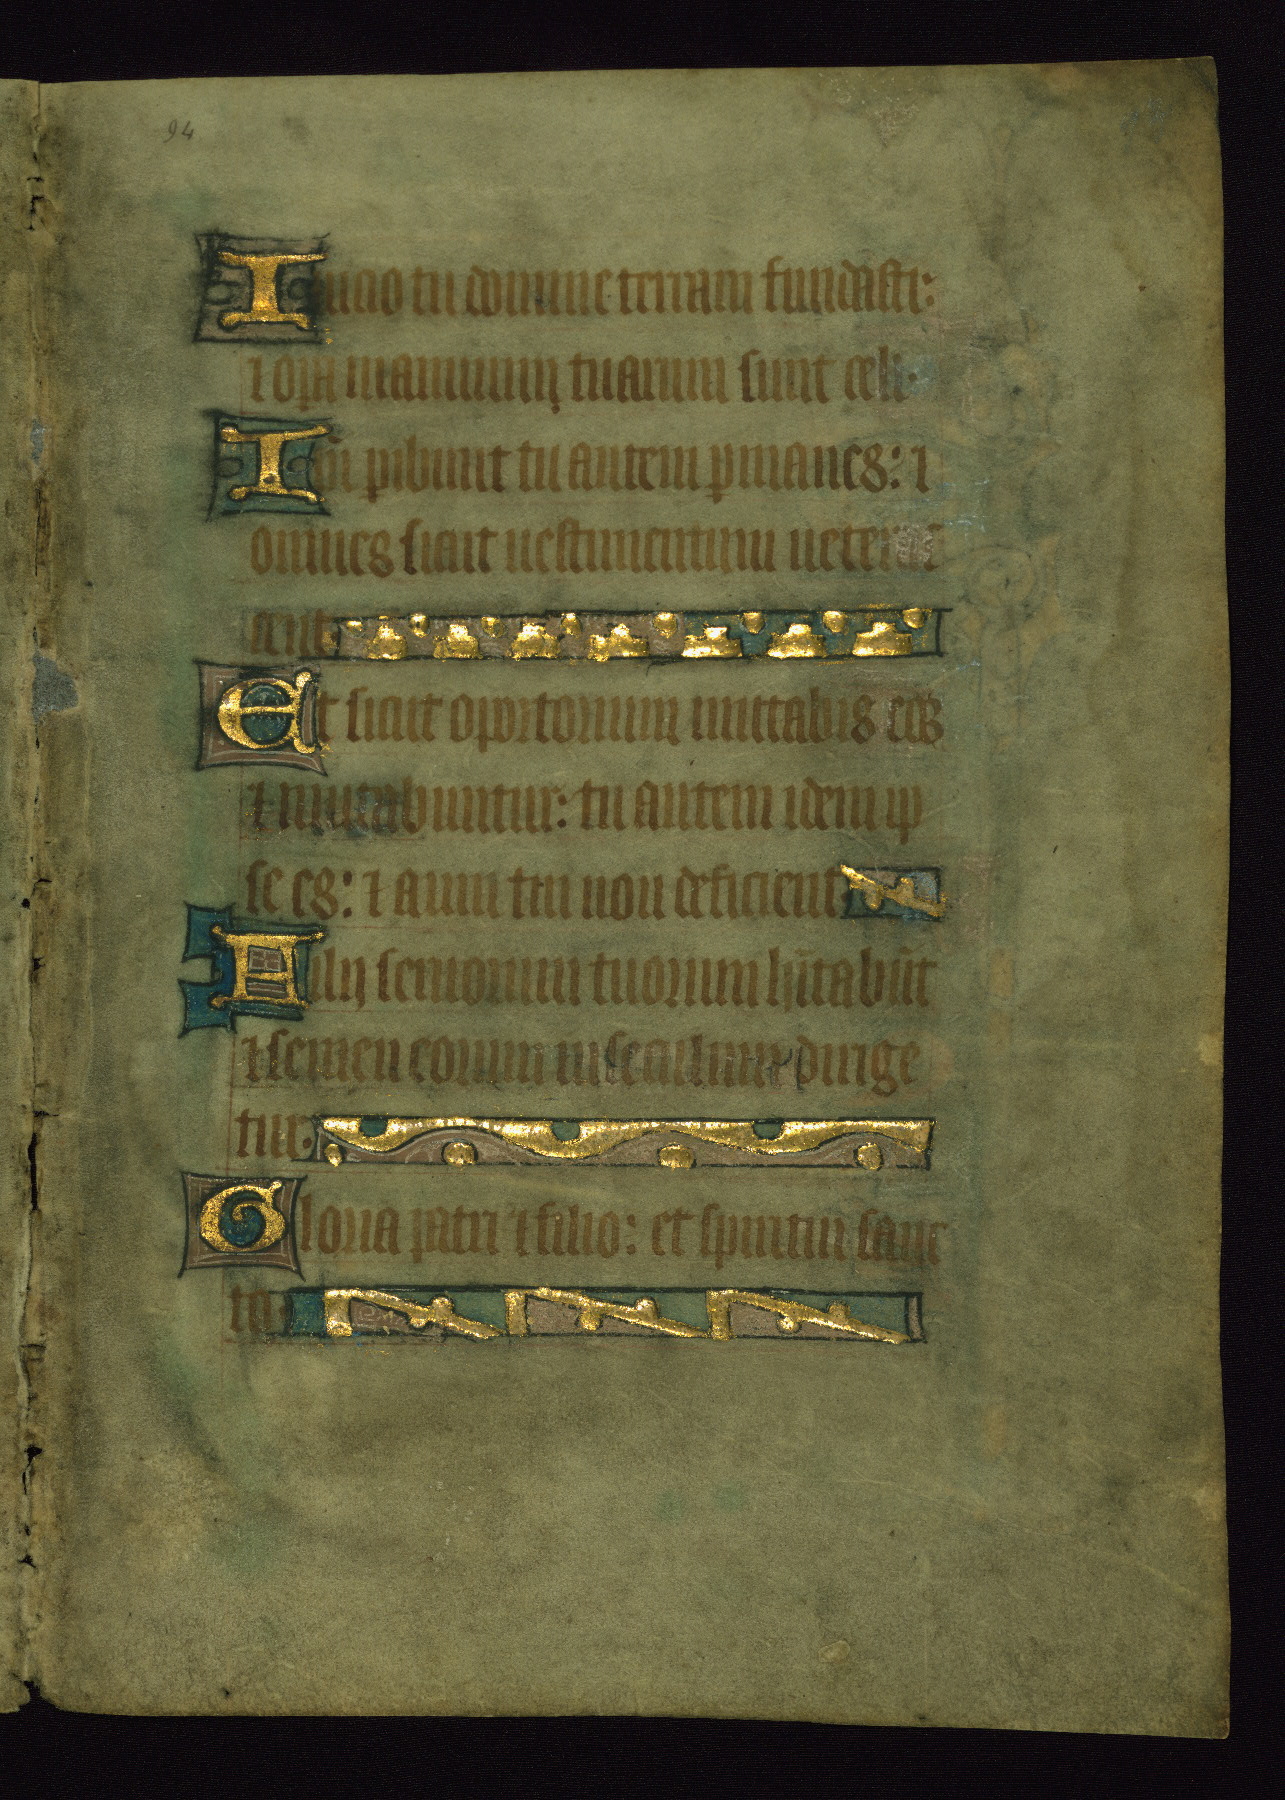 94
Inicio tu domine terram fundasti:
⁊ oꝑa manuum tuarum sunt celi.
Ipi ꝑibunt tu autem ꝑmanes: ⁊
omnes sicut uestimentum ueteras
cent
Et sicut oportorium mutabis eos
⁊ mutabuntur: tu autem idem ip
se es: ⁊ anni tui non deficient
Filij seruorum tuorum hītabūt
⁊ semen eorum in seculum dirige
tur.
Gloria patri ⁊ filio: et spiritui sanc
to